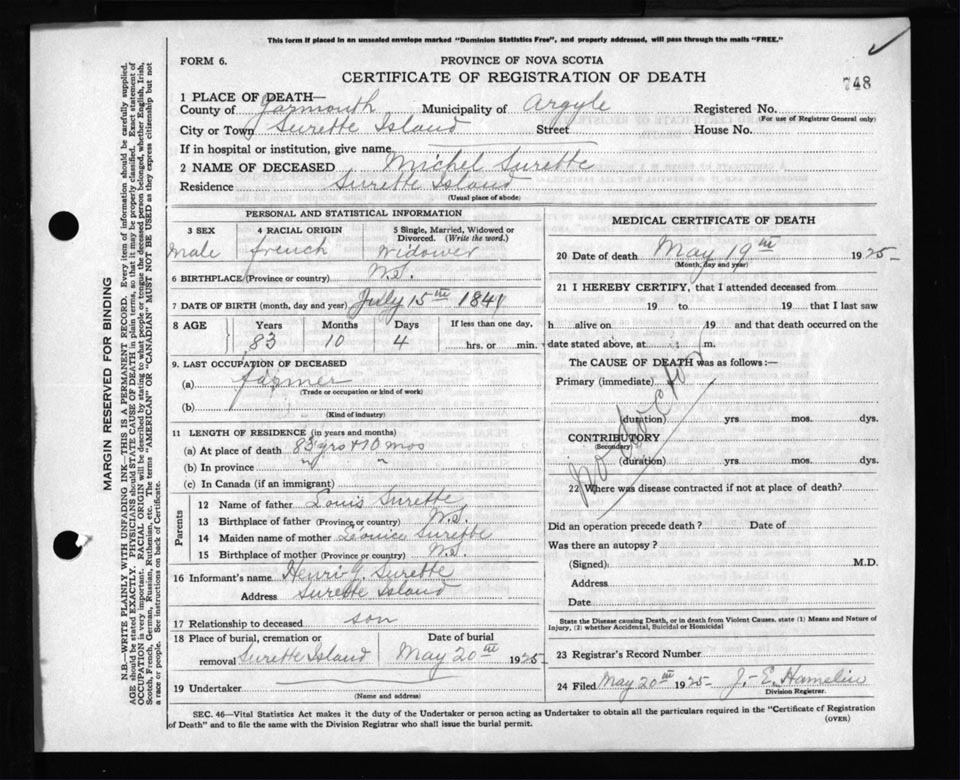 This form if placed in an unsealed envelope marked "Dominion Statistics Free", and properly addressed, will pass through the mails "FREE."
FORM 6.
PROVINCE OF NOVA SCOTIA
CERTIFICATE OF REGISTRATION OF DEATH
748
1 PLACE OF DEATH—
County of Yarmouth Municipality of Argyle Registered No.
(For use of Registrar General only)
City or Town Surette Island Street House No.
If in hospital or institution, give name
2 NAME OF DECEASED Michel Surette
Residence Surette Island
(Usual place of abode)
PERSONAL AND STATISTICAL INFORMATION
3 SEX 4 RACIAL ORIGIN 5 Single, Married, Widowed or Divorced. (Write the word.)
Male french Widower
6 BIRTHPLACE (Province or country) N.S.
7 DATE OF BIRTH (month, day and year) July 15th 1841
8 AGE Years Months Days If less than one day,
83 10 4 hrs. or min.
9. LAST OCCUPATION OF DECEASED
(a) farmer
(Trade or occupation or kind of work)
(b)
(Kind of industry)
11 LENGTH OF RESIDENCE (in years and months)
(a) At place of death 83 yrs + 10 mos
(b) In province " "
(c) In Canada (if an immigrant)
Parents
12 Name of father Louis Surette
13 Birthplace of father (Province or country) N.S.
14 Maiden name of mother Surette
15 Birthplace of mother (Province or country) N.S.
16 Informant's name Henri J. Surette
Address Surette Island
17 Relationship to deceased son
18 Place of burial, cremation or Date of burial
removal Surette Island May 20th 1925
19 Undertaker
(Name and address)
MEDICAL CERTIFICATE OF DEATH
20 Date of death May 19th 1925
(Month, day and year)
21 I HEREBY CERTIFY, that I attended deceased from
19 to 19 that I last saw
h alive on 19 and that death occurred on the
date stated above, at : m.
The CAUSE OF DEATH was as follows:—
Primary (immediate)
no doctor
(duration) yrs mos. dys.
CONTRIBUTORY
(Secondary)
(duration) yrs. mos. dys.
22 Where was disease contracted if not at place of death?
Did an operation precede death? Date of
Was there an autopsy?
(Signed) M.D.
Address
Date
State the Disease causing Death, or in death from Violent Causes, state (1) Means and Nature of
Injury, (2) whether Accidental, Suicidal or Homicidal
23 Registrar's Record Number
24 Filed May 20th 1925 J.-E. Hamelin
Division Registrar.
SEC. 46—Vital Statistics Act makes it the duty of the Undertaker or person acting as Undertaker to obtain all the particulars required in the "Certificate of Registration
of Death" and to file the same with the Division Registrar who shall issue the burial permit.
(OVER)
MARGIN RESERVED FOR BINDING
N.B.—WRITE PLAINLY WITH UNFADING INK—THIS IS A PERMANENT RECORD. Every item of information should be carefully supplied.
AGE should be stated EXACTLY. PHYSICIANS should STATE CAUSE OF DEATH in plain terms, so that it may be properly classified. Exact statement of
OCCUPATION is very important. RACIAL ORIGIN will be described by stating to what people or tongue the deceased person belonged, whether English, Irish,
Scotch, French, German, Russian, Ruthenian, etc. The terms "AMERICAN" OR "CANADIAN" MUST NOT BE USED as they express citizenship but not
a race or people. See instructions on back of Certificate.